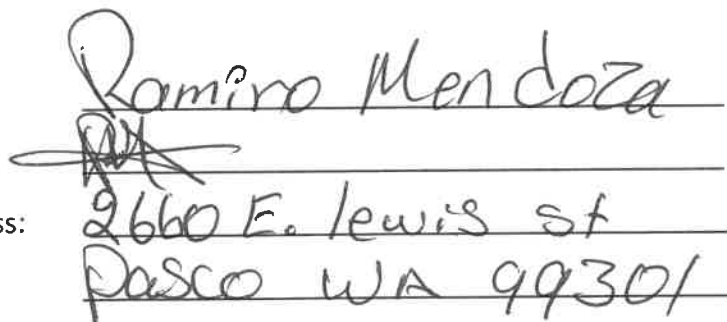 Ramiro Mendoza
RM
ss: 2660 E. lewis st
Pasco WA 99301